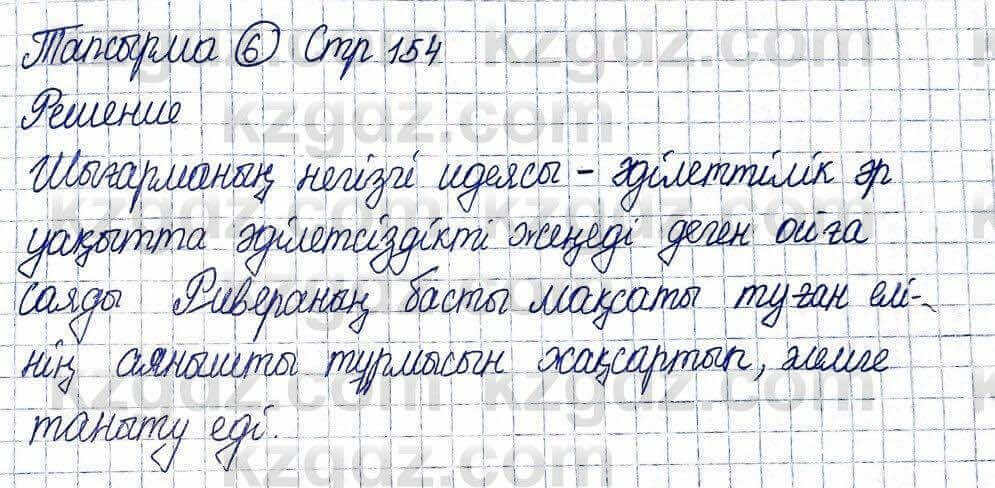 Тапсырма 6 Стр 154
Решение
Шығарманың негізгі идеясы - әділеттілік әр
уақытта әділетсіздікті жеңеді деген ойға
саяды Ривераның басты мақсаты туған елі-
нің аянышты тұрмысын жақсартып, әлемге
таныту еді.